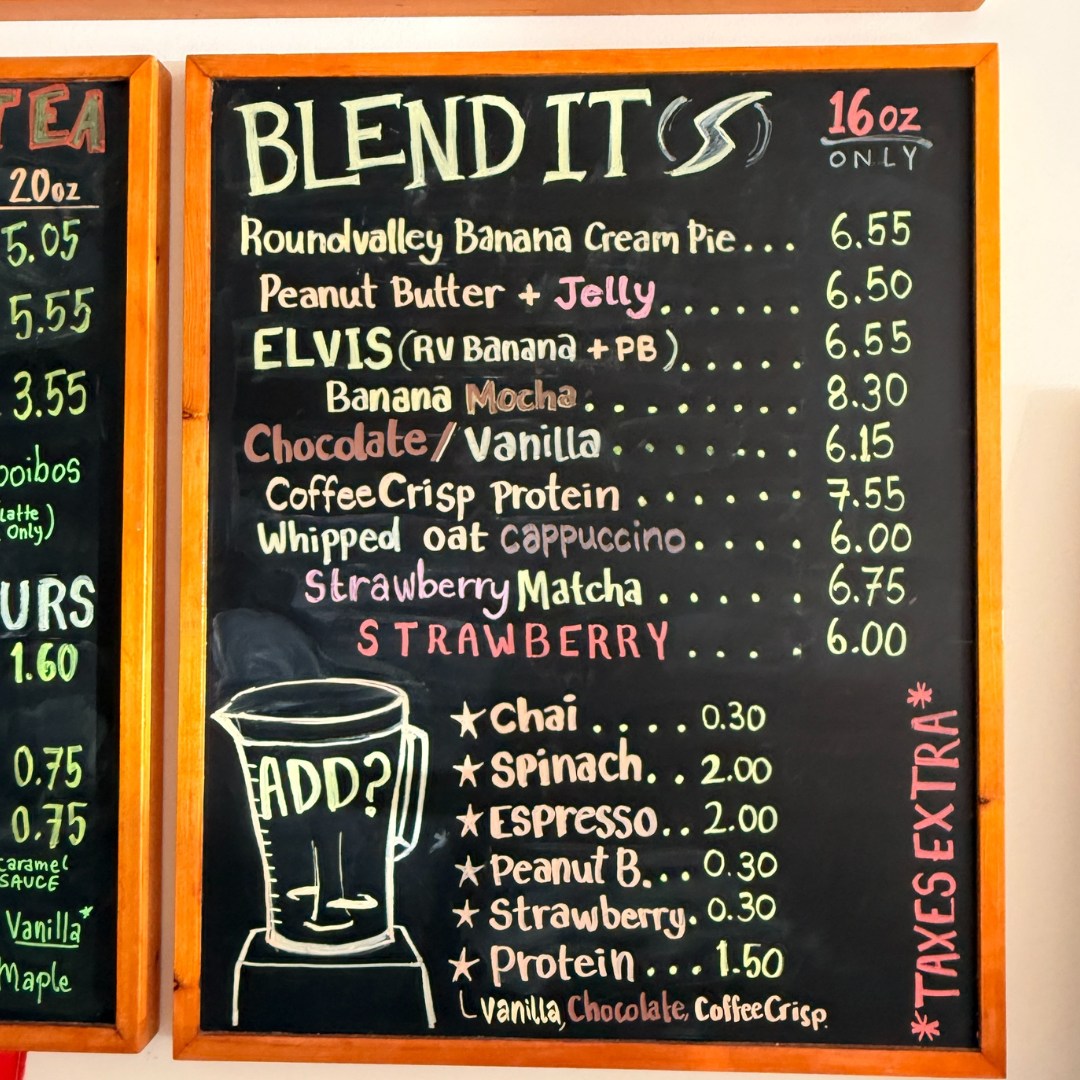 TEA
20oz
5.05
5.55
3.55
ooibos
latte
only)
URS
1.60
0.75
0.75
caramel
SAUCE
Vanilla*
Maple
BLEND IT
16oz
ONLY
Roundvalley Banana Cream Pie... 6.55
Peanut Butter + Jelly...... 6.50
ELVIS (RV Banana + PB)..... 6.55
Banana Mocha......... 8.30
Chocolate/Vanilla....... 6.15
CoffeeCrisp Protein...... 7.55
Whipped oat cappuccino.... 6.00
Strawberry Matcha..... 6.75
STRAWBERRY.... 6.00
ADD?
★ Chai.... 0.30
★ Spinach.. 2.00
★ Espresso.. 2.00
★ Peanut B... 0.30
★ Strawberry. 0.30
★ Protein... 1.50
Vanilla, Chocolate, CoffeeCrisp.
*TAXES EXTRA*